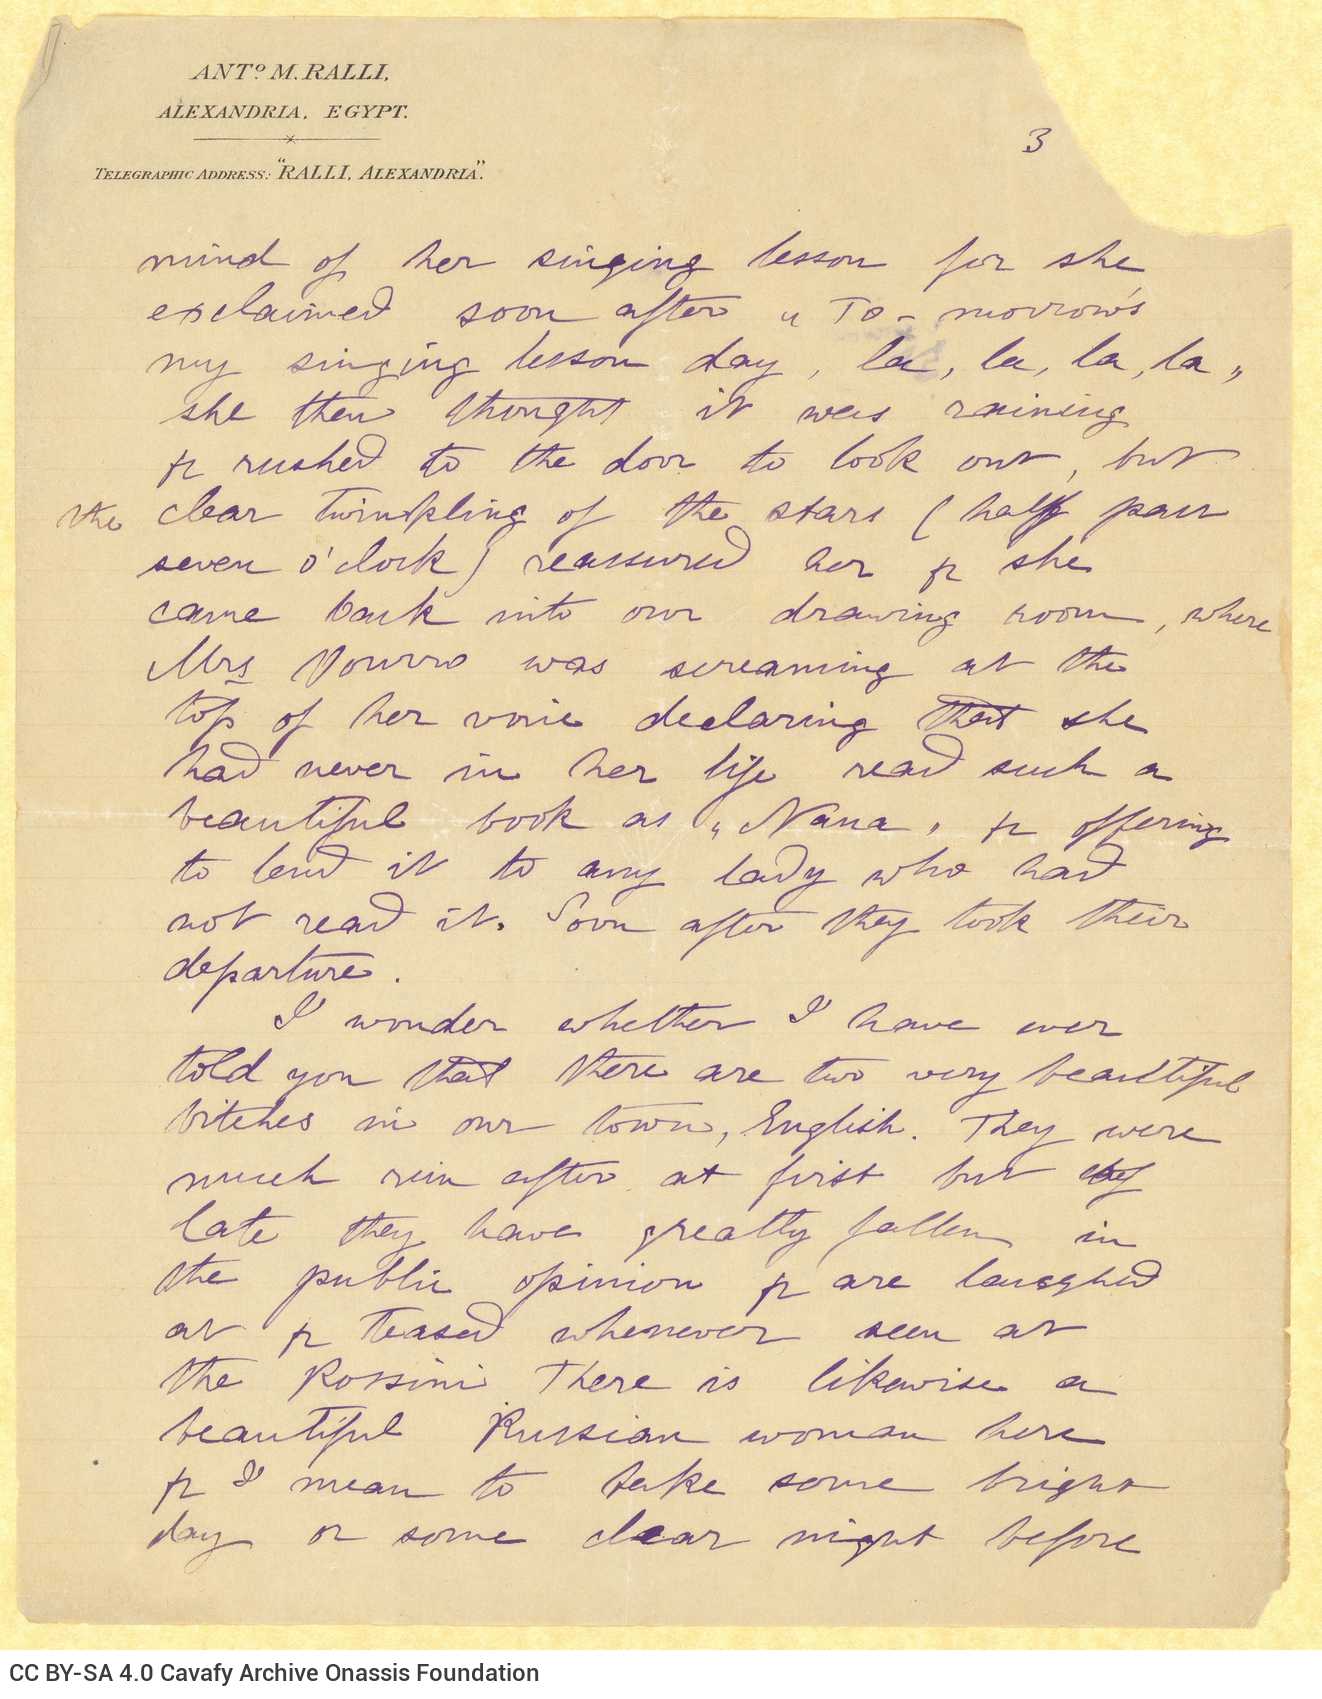 ANTº M. RALLI,
ALEXANDRIA, EGYPT.
TELEGRAPHIC ADDRESS: "RALLI, ALEXANDRIA".
3
mind of her singing lesson for she
exclaimed soon after „ To-morrow's
my singing lesson day, la, la, la, la „
she then thought it was raining
& rushed to the door to look out, but
the clear twinkling of the stars (half past
seven o'clock) reassured her & she
came back into our drawing room, where
Mrs was screaming at the
top of her voice declaring that she
had never in her life read such a
beautiful book as „Nana„ & offering
to lend it to any lady who had
not read it. Soon after they took their
departure.
I wonder whether I have ever
told you that there are two very beautiful
bitches in our town, English. They were
much run after at first but of
late they have greatly fallen in
the public opinion & are laughed
at & teased whenever seen at
the Rossini. There is likewise a
beautiful Russian woman here
& I mean to take some bright
day or some clear night before
CC BY-SA 4.0 Cavafy Archive Onassis Foundation